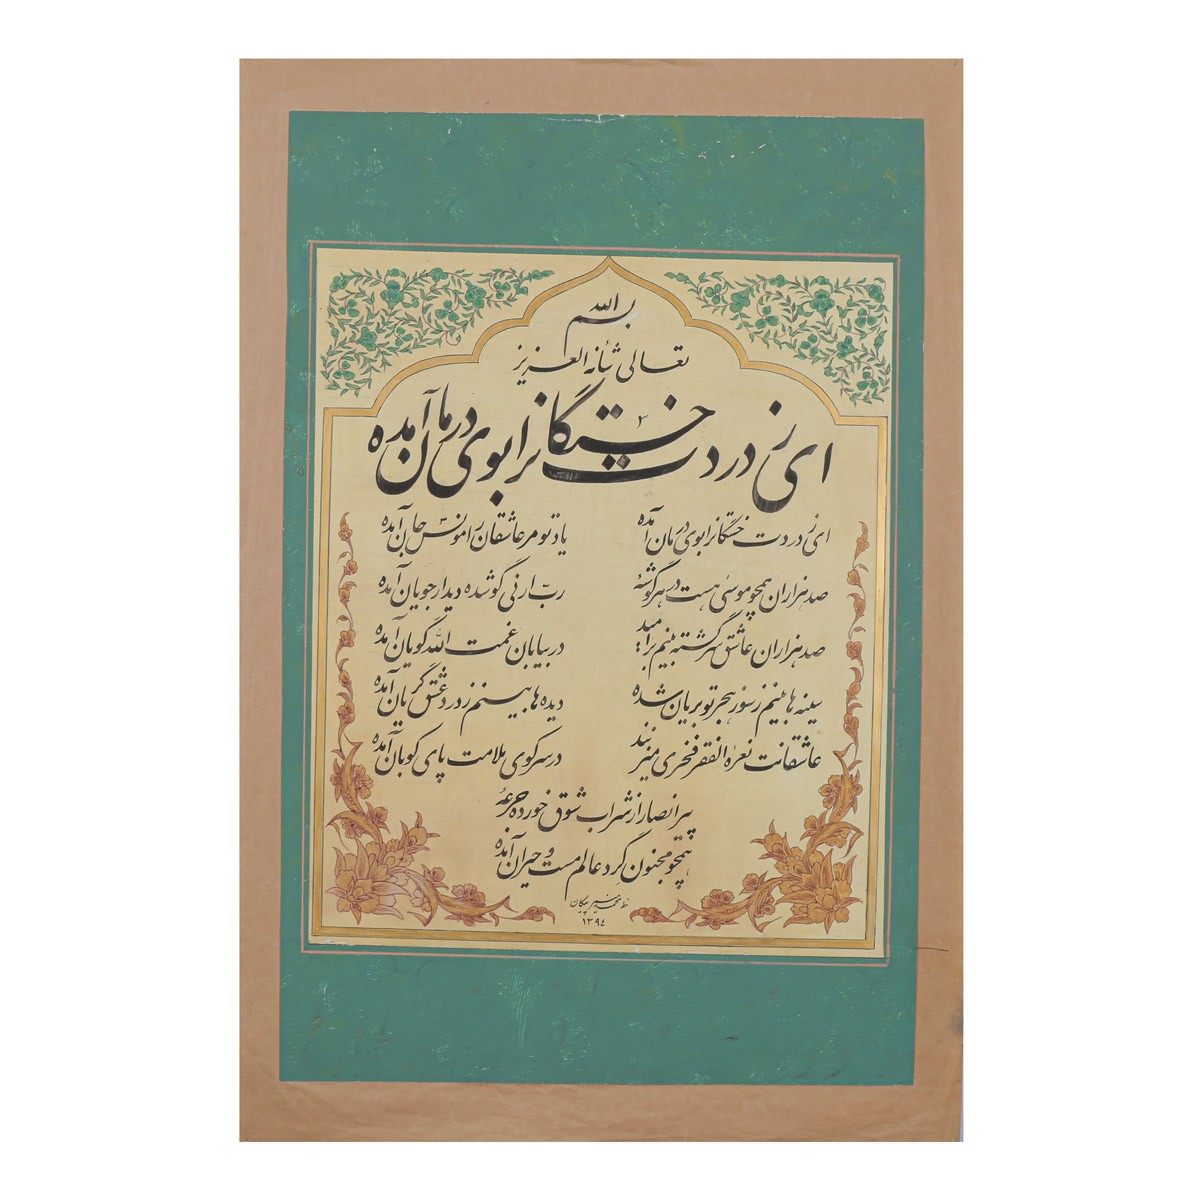 بسم الله
تعالی شأنه العزیز
ای ز دردت خستگانرا بوی درمان آمده
ای ز دردت خستگانرا بوی درمان آمده یاد تو مر عاشقان را مونس جان آمده
صد هزاران همچو موسی هست در هر گوشهٔ ربّ ارنی گو شده دیدار جویان آمده
صد هزاران عاشق سرگشته بینم بر امید در بیابان غمت الله گویان آمده
سینه ها بینم ز سوز هجر تو بریان شده دیده ها بینم ز درد عشق گریان آمده
عاشقانت نعرهٔ الفقر فخری میزنند در سر کوی ملامت پای کوبان آمده
پیر انصار از شراب شوق خورده جرعهٔ
همچو مجنون گرد عالم مست و حیران آمده
خط
۱۳۹۴